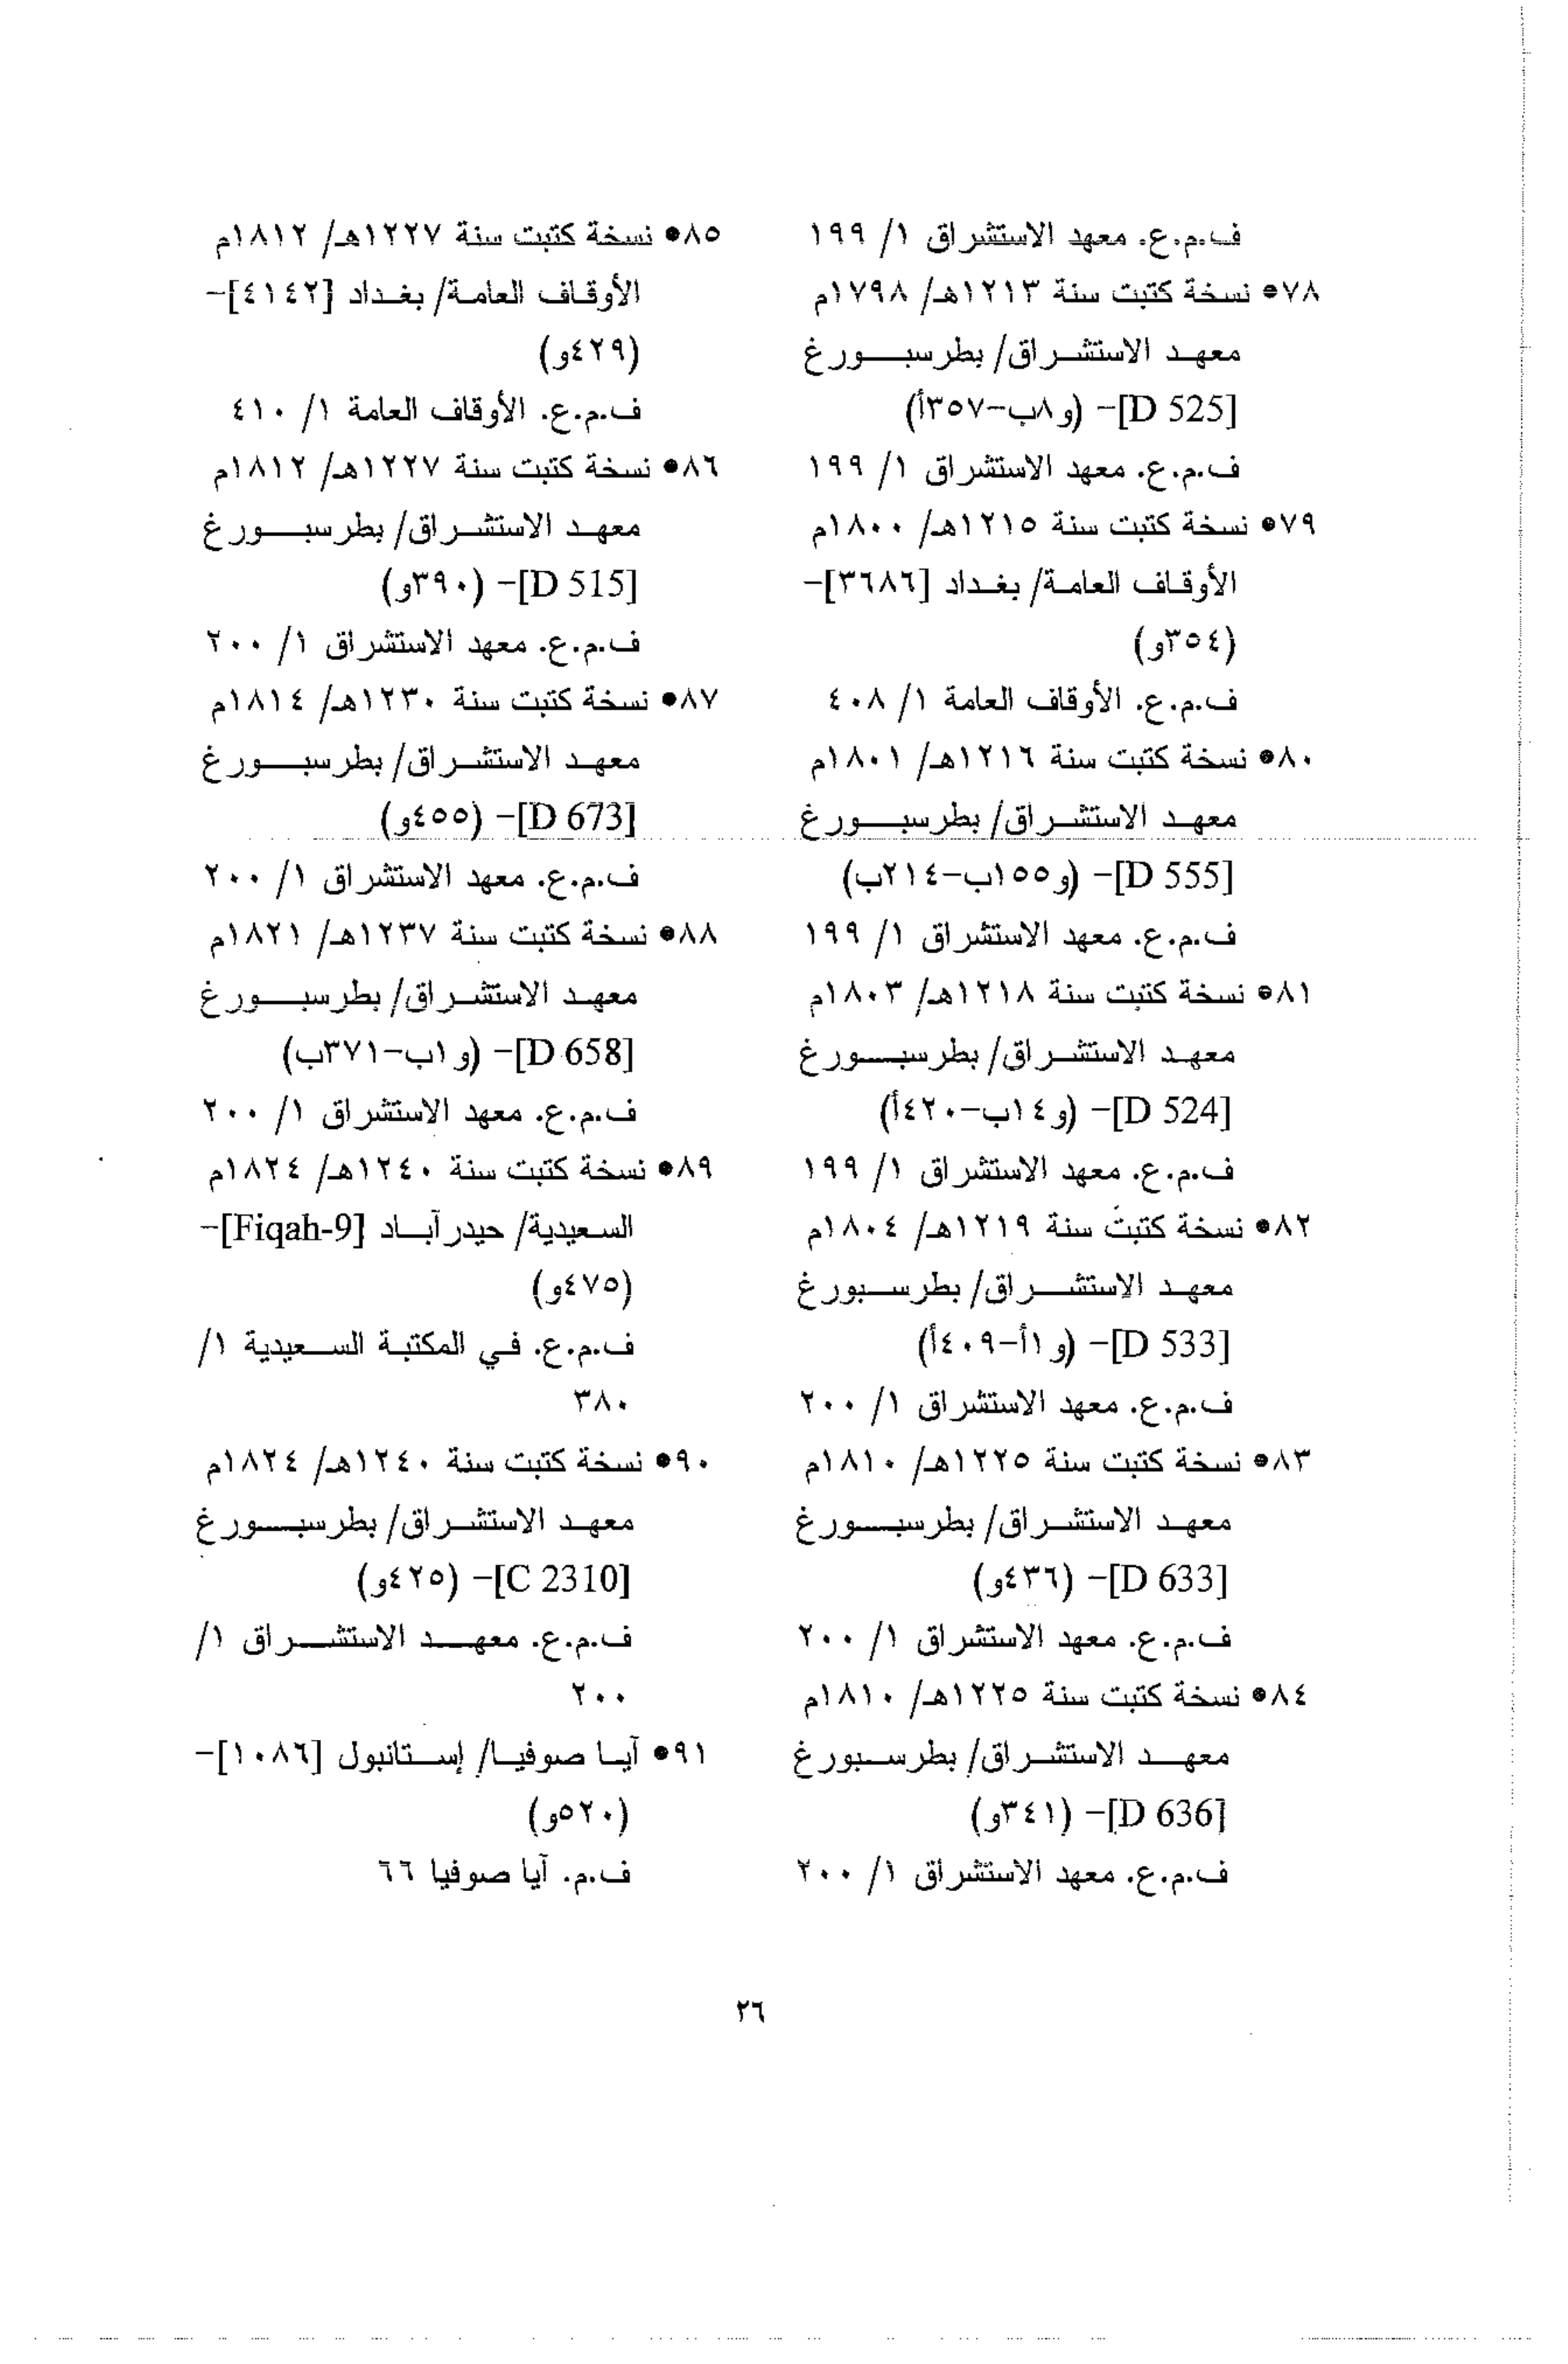 ف.م.ع. معهد الاستشراق ١/ ١٩٩
٧٨• نسخة كتبت سنة ١٢١٣هـ/ ١٧٩٨م
معهد الاستشراق/ بطرسبورغ
[D 525]- (و٨ب-٣٥٧أ)
ف.م.ع. معهد الاستشراق ١/ ١٩٩
٧٩• نسخة كتبت سنة ١٢١٥هـ/ ١٨٠٠م
الأوقاف العامة/ بغداد [٣٦٨٦]-
(٣٥٤و)
ف.م.ع. الأوقاف العامة ١/ ٤٠٨
٨٠• نسخة كتبت سنة ١٢١٦هـ/ ١٨٠١م
معهد الاستشراق/ بطرسبورغ
[D 555]- (و١٥٥ب-٢١٤ب)
ف.م.ع. معهد الاستشراق ١/ ١٩٩
٨١• نسخة كتبت سنة ١٢١٨هـ/ ١٨٠٣م
معهد الاستشراق/ بطرسبورغ
[D 524]- (و١٤ب-٤٢٠أ)
ف.م.ع. معهد الاستشراق ١/ ١٩٩
٨٢• نسخة كتبت سنة ١٢١٩هـ/ ١٨٠٤م
معهد الاستشراق/ بطرسبورغ
[D 533]- (و١أ-٤٠٩أ)
ف.م.ع. معهد الاستشراق ١/ ٢٠٠
٨٣• نسخة كتبت سنة ١٢٢٥هـ/ ١٨١٠م
معهد الاستشراق/ بطرسبورغ
[D 633]- (٤٣٦و)
ف.م.ع. معهد الاستشراق ١/ ٢٠٠
٨٤• نسخة كتبت سنة ١٢٢٥هـ/ ١٨١٠م
معهد الاستشراق/ بطرسبورغ
[D 636]- (٣٤١و)
ف.م.ع. معهد الاستشراق ١/ ٢٠٠
٨٥• نسخة كتبت سنة ١٢٢٧هـ/ ١٨١٢م
الأوقاف العامة/ بغداد [٤١٤٢]-
(٤٢٩و)
ف.م.ع. الأوقاف العامة ١/ ٤١٠
٨٦• نسخة كتبت سنة ١٢٢٧هـ/ ١٨١٢م
معهد الاستشراق/ بطرسبورغ
[D 515]- (٣٩٠و)
ف.م.ع. معهد الاستشراق ١/ ٢٠٠
٨٧• نسخة كتبت سنة ١٢٣٠هـ/ ١٨١٤م
معهد الاستشراق/ بطرسبورغ
[D 673]- (٤٥٥و)
ف.م.ع. معهد الاستشراق ١/ ٢٠٠
٨٨• نسخة كتبت سنة ١٢٣٧هـ/ ١٨٢١م
معهد الاستشراق/ بطرسبورغ
[D 658]- (و١ب-٣٧١ب)
ف.م.ع. معهد الاستشراق ١/ ٢٠٠
٨٩• نسخة كتبت سنة ١٢٤٠هـ/ ١٨٢٤م
السعيدية/ حيدرآباد [Fiqah-9]-
(٤٧٥و)
ف.م.ع. في المكتبة السعيدية ١/
٣٨٠
٩٠• نسخة كتبت سنة ١٢٤٠هـ/ ١٨٢٤م
معهد الاستشراق/ بطرسبورغ
[C 2310]- (٤٢٥و)
ف.م.ع. معهد الاستشراق ١/
٢٠٠
٩١• آيا صوفيا/ إستانبول [١٠٨٦]-
(٥٢٠و)
ف.م. آيا صوفيا ٦٦
٢٦